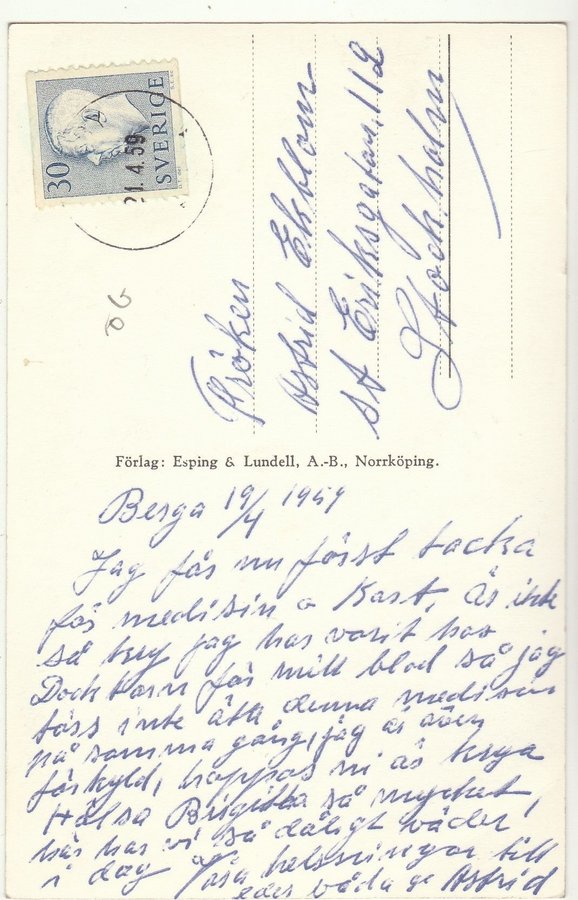 30
SVERIGE
21.4.59
Fröken
Astrid Ekblom
St Eriksgatan 112
Stockholm
Förlag: Esping & Lundell, A.-B., Norrköping.
Berga 19/4 1959
Jag får nu först tacka
för medisin o Kort, är inte
så kry jag har varit hos
Docktorn för mitt blod så jag
törs inte äta denna medisin
på samma gång, jag är även
förkyld, hoppas ni är krya
Hälsa Birgitta så mycket,
här har vi så dåligt väder
i dag helsningar till
eder båda Astrid